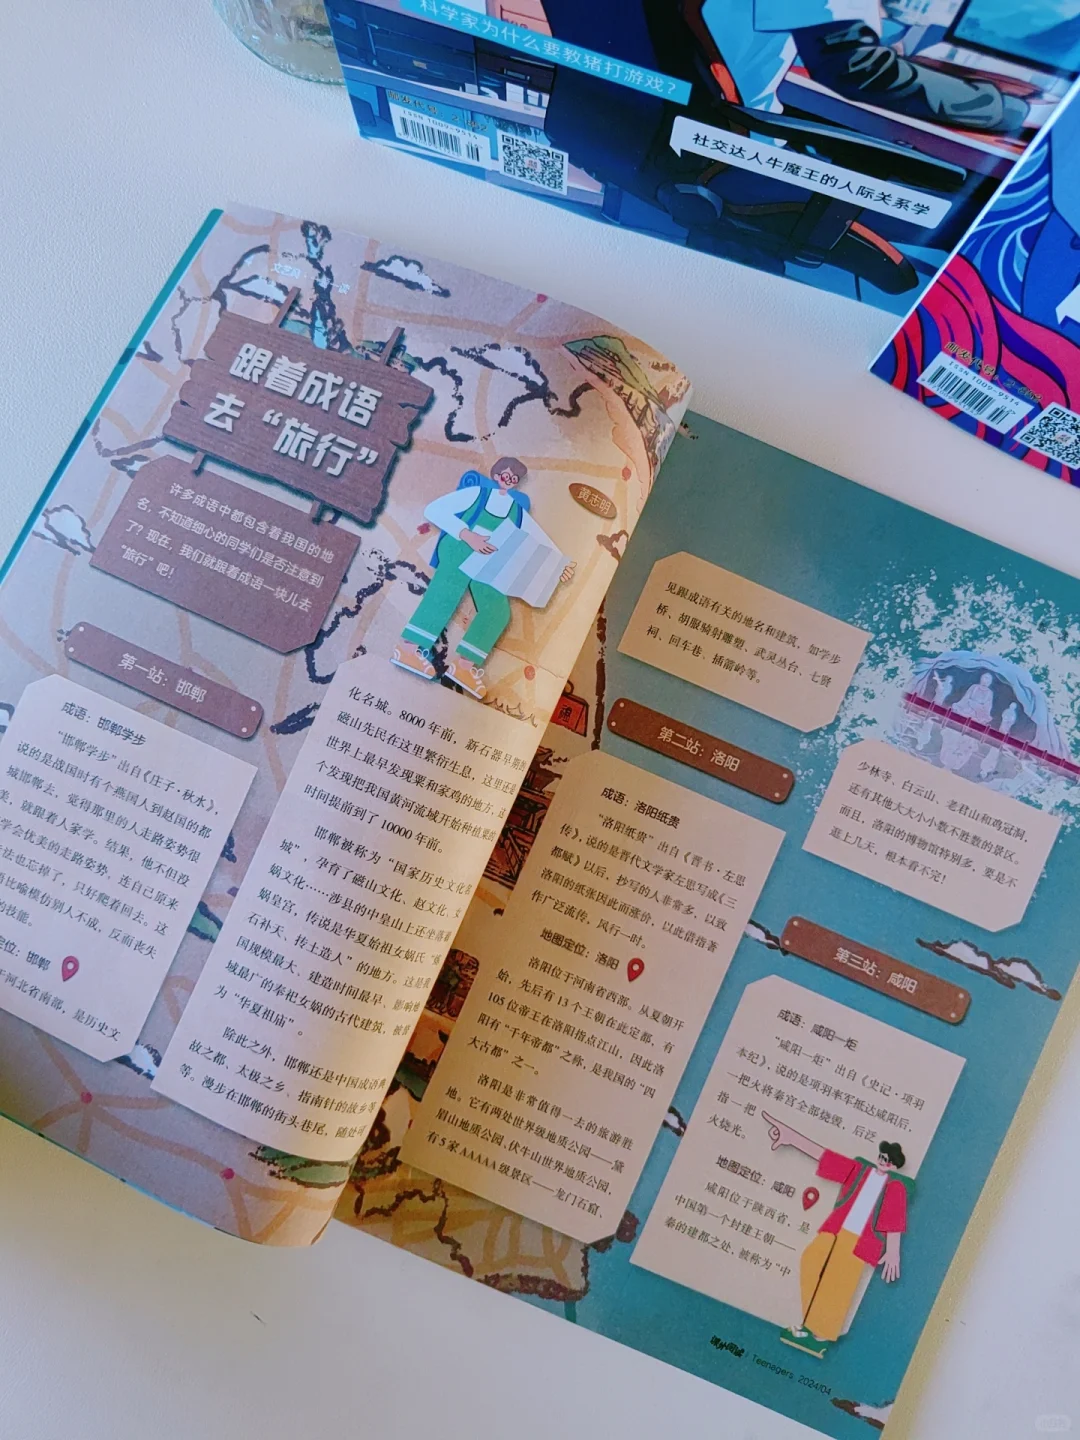 科学家为什么要教猪打游戏?
ISSN 1009-9514
社交达人牛魔王的人际关系学
ISSN 1009-9514
跟着成语
去“旅行”
黄志明
许多成语中都包含着我国的地
名，不知道细心的同学们是否注意到
了？现在，我们就跟着成语一块儿去
“旅行”吧！
第一站：邯郸
成语：邯郸学步
“邯郸学步”出自《庄子·秋水》，
说的是战国时有个燕国人到赵国的都
城邯郸去，觉得那里的人走路姿势很
美，就跟着人家学。结果，他不但没
学会优美的走路姿势，连自己原来
法也忘掉了，只好爬着回去。这
比喻模仿别人不成，反而丧失
的技能。
定位：邯郸
于河北省南部，是历史文
化名城。8000 年前，新石器早期的
磁山先民在这里繁衍生息，这里还是
世界上最早发现粟和家鸡的地方，这
个发现把我国黄河流域开始种植粟的
时间提前到了 10000 年前。
邯郸被称为“国家历史文化名
城”，孕育了磁山文化、赵文化、女
娲文化……涉县的中皇山上还坐落着
娲皇宫，传说是华夏始祖女娲氏“炼
石补天、抟土造人”的地方。这是我
国规模最大、建造时间最早、影响地
域最广的奉祀女娲的古代建筑，被誉
为“华夏祖庙”。
除此之外，邯郸还是中国成语典
故之都、太极之乡、指南针的故乡等
等。漫步在邯郸的街头巷尾，随处可
见跟成语有关的地名和建筑，如学步
桥、胡服骑射雕塑、武灵丛台、七贤
祠、回车巷、插箭岭等。
第二站：洛阳
成语：洛阳纸贵
“洛阳纸贵”出自《晋书·左思
传》，说的是晋代文学家左思写成《三
都赋》以后，抄写的人非常多，以致
洛阳的纸张因此而涨价，以此借指著
作广泛流传，风行一时。
地图定位：洛阳
洛阳位于河南省西部。从夏朝开
始，先后有 13 个王朝在此定都，有
105 位帝王在洛阳指点江山，因此洛
阳有“千年帝都”之称，是我国的“四
大古都”之一。
洛阳是非常值得一去的旅游胜
地。它有两处世界级地质公园——黛
眉山地质公园、伏牛山世界地质公园，
有 5 家 AAAAA 级景区——龙门石窟、
少林寺、白云山、老君山和鸡冠洞，
还有其他大大小小数不胜数的景区。
而且，洛阳的博物馆特别多，要是不
逛上几天，根本看不完！
第三站：咸阳
成语：咸阳一炬
“咸阳一炬”出自《史记·项羽
本纪》，说的是项羽率军抵达咸阳后，
一把火将秦宫全部烧毁，后泛
指一把
火烧光。
地图定位：咸阳
咸阳位于陕西省，是
中国第一个封建王朝——
秦的建都之处，被称为“中
Teenagers 2024/04